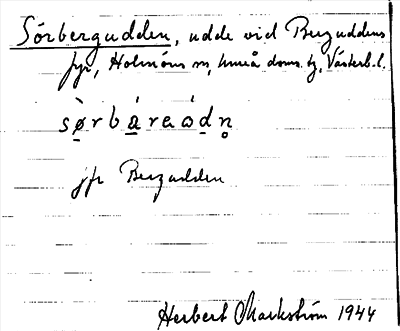 Sörbergudden, udde vid Berguddens
fyr, Holmöns sn, Umeå doms. tg, Västerb. l.
sø̀rbáreòdn̥
jfr Bergudden
Herbert Markström 1944